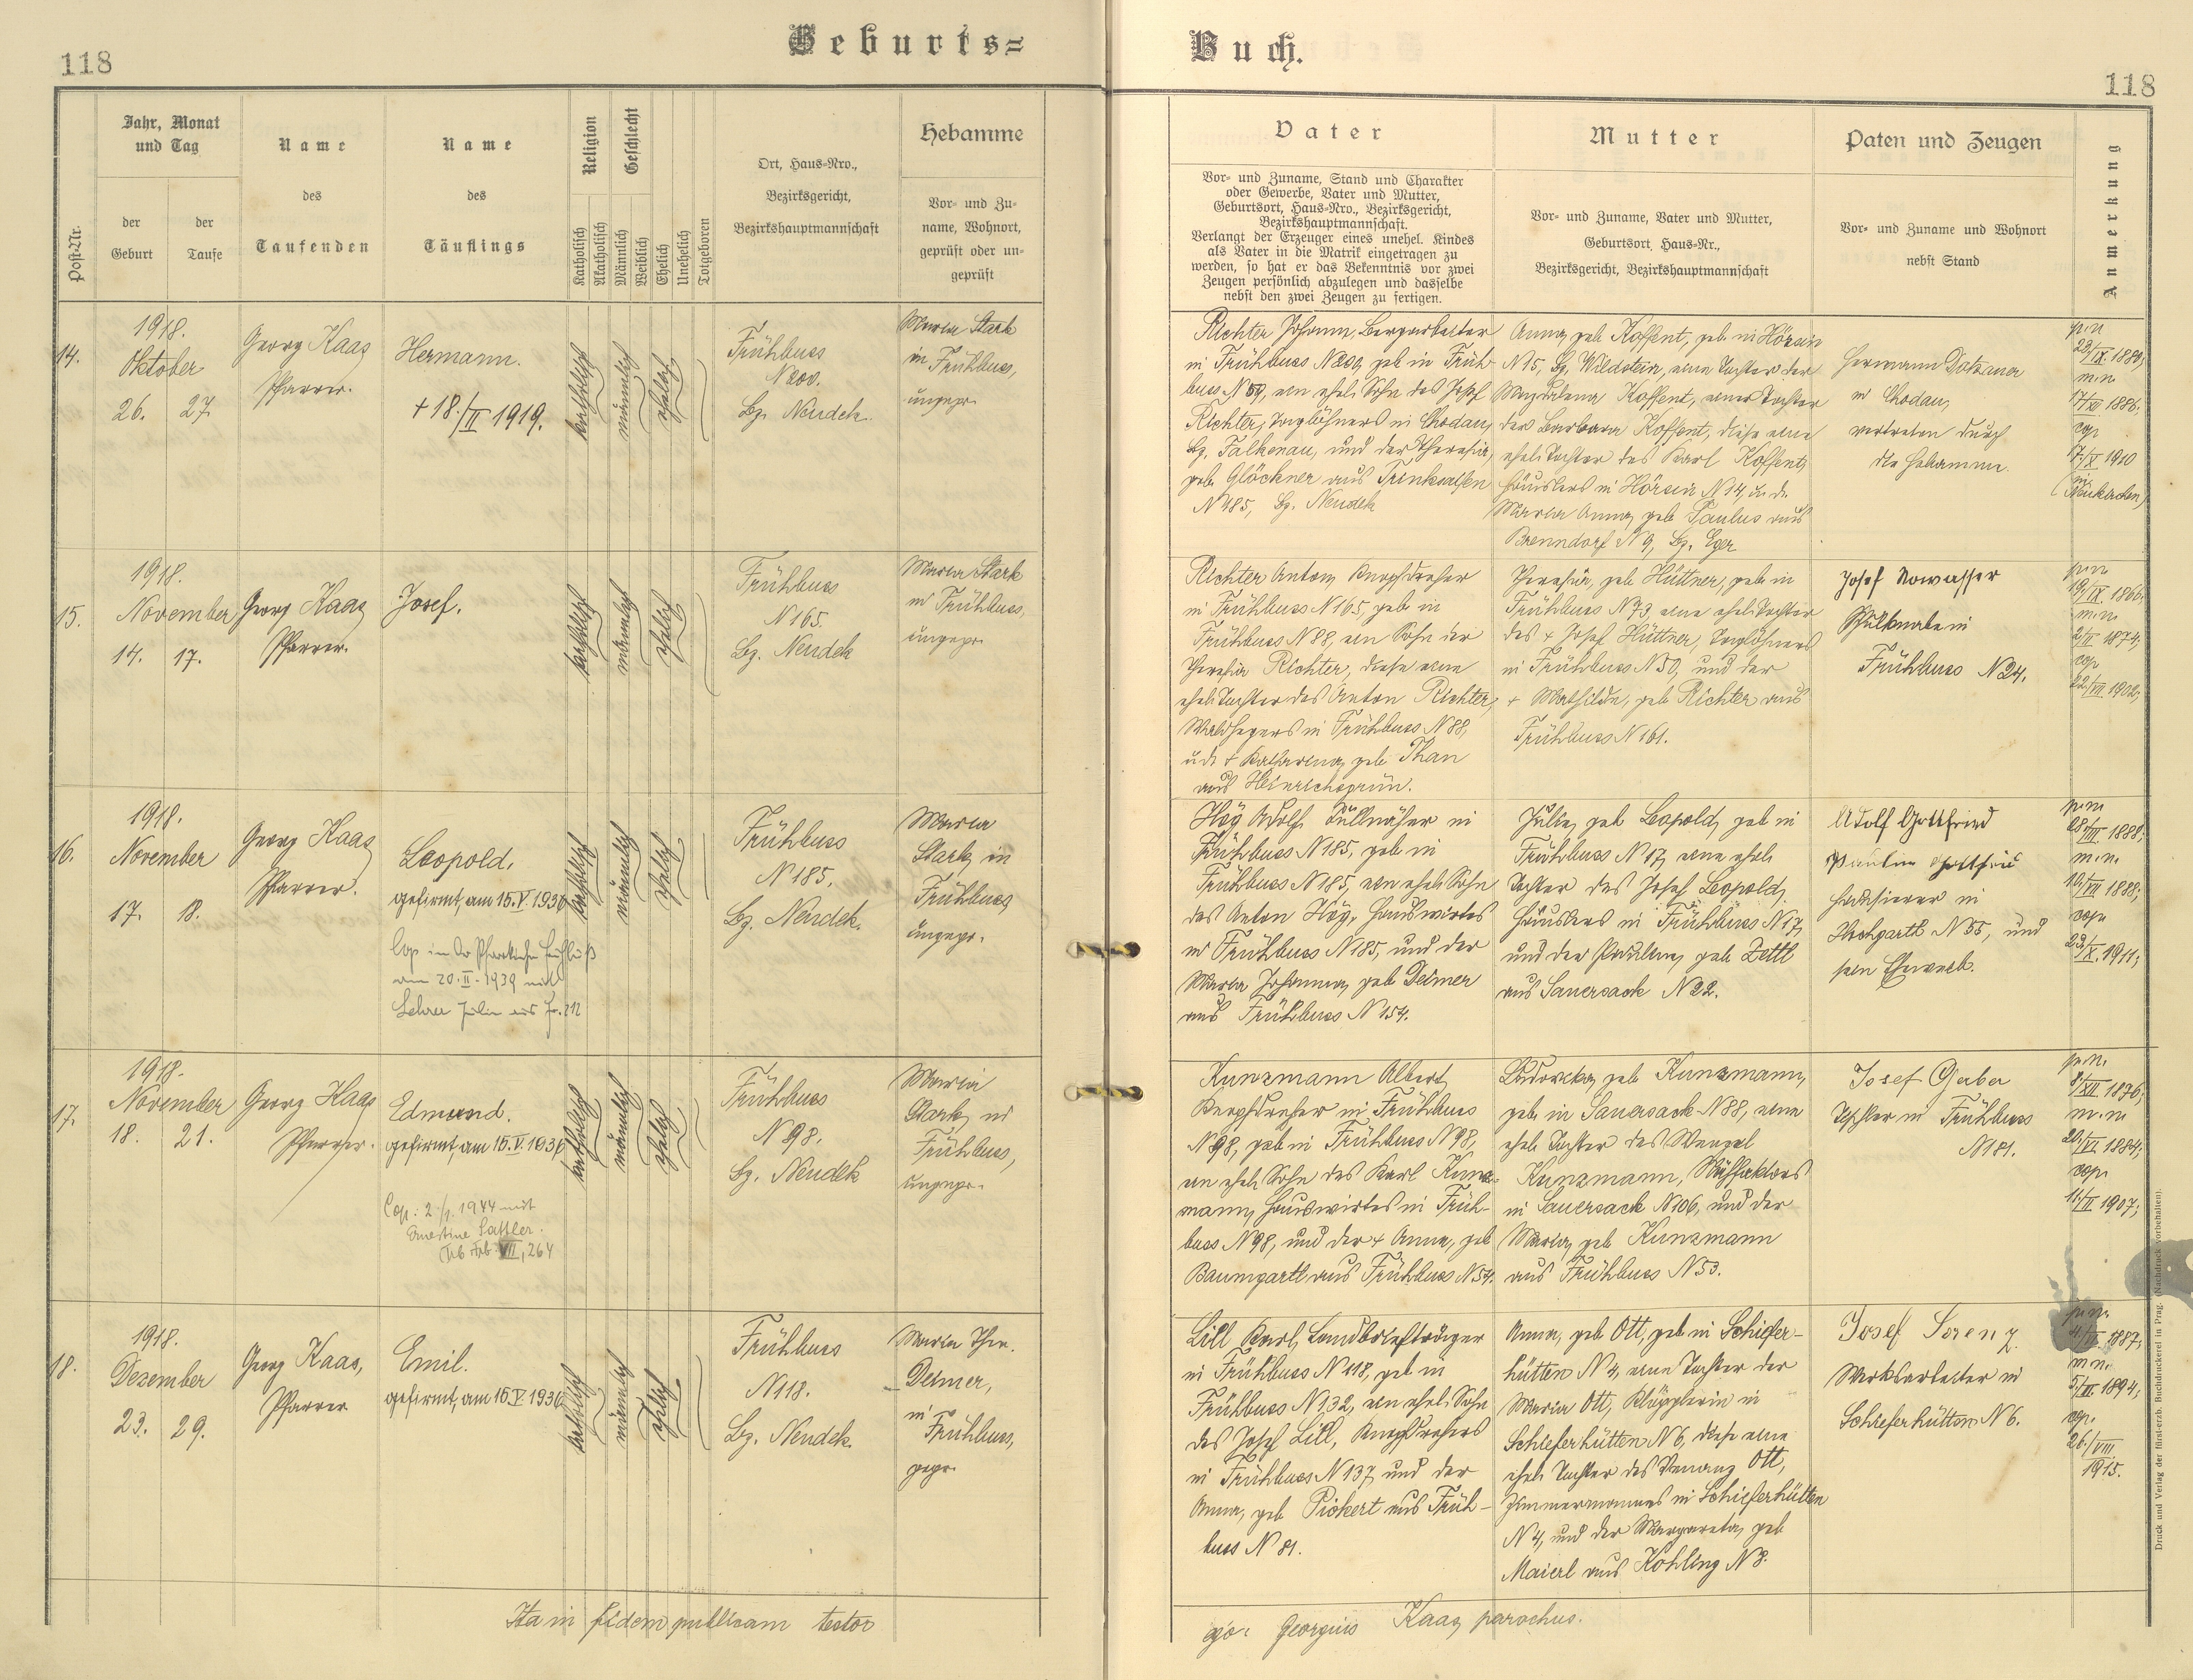 118
Geburts=
Buch.
118
Post-Nr.
Jahr, Monat
und Tag
der
Geburt
der
Taufe
Name
des
Taufenden
Name
des
Täuflings
Religion
Katholisch
Akatholisch
Geschlecht
Männlich
Weiblich
Ehelich
Unehelich
Totgeboren
Ort, Haus-Nro.,
Bezirksgericht,
Bezirkshauptmannschaft
Hebamme
Vor- und Zu-
name, Wohnort,
geprüft oder un-
geprüft
Vater
Vor- und Zuname, Stand und Charakter
oder Gewerbe, Vater und Mutter,
Geburtsort, Haus-Nro., Bezirksgericht,
Bezirkshauptmannschaft.
Verlangt der Erzeuger eines unehel. Kindes
als Vater in die Matrik eingetragen zu
werden, so hat er das Bekenntnis vor zwei
Zeugen persönlich abzulegen und dasselbe
nebst den zwei Zeugen zu fertigen.
Mutter
Vor- und Zuname, Vater und Mutter,
Geburtsort, Haus-Nr.,
Bezirksgericht, Bezirkshauptmannschaft
Paten und Zeugen
Vor- und Zuname und Wohnort
nebst Stand
Anmerkung
14.
1918.
Oktober
26. 27.
Georg Haas
Pfarrer.
Hermann.
+ 18./II 1919.
katholisch
männlich
ehelich
Frühbuss
N 200.
Bz. Neudek.
Maria Stark
in Frühbuss,
ungepr.
Richter Johann, Bergarbeiter
in Frühbuss N 200, geb. in Früh-
buss N 59, ein ehel. Sohn des Josef
Richter, Taglöhners in Chodau,
Bz. Falkenau, und der Theresia,
geb. Glöckner aus Trinkseifen
N 485, Bz. Neudek
Anna, geb. Koffent, geb. in Hörsin
N 15, Bz. Wildstein, eine Tochter der
Magdalena Koffent, einer Tochter
der Barbara Koffent, diese eine
ehel. Tochter des Karl Koffent,
Häuslers in Hörsin N 14, u. d.
Maria Anna, geb. Paulus aus
Brenndorf N 9, Bz. Eger
Hermann
in Chodau,
vertreten durch
die Hebamme.
p. n.
23/IX. 1889;
m. n.
1886;
cop.
17/X 1910
(in
Neukirchen)
15.
1918.
November
14. 17.
Georg Haas
Pfarrer.
Josef.
katholisch
männlich
ehelich
Frühbuss
N 165.
Bz. Neudek
Maria Stark
in Frühbuss,
ungepr.
Richter Anton, Knopfdreher
in Frühbuss N 165, geb. in
Frühbuss N 88, ein Sohn der
Theresia Richter, diese eine
ehel. Tochter des Anton Richter,
Waldhegers in Frühbuss N 88,
u. d. + Katharina, geb. Than
aus Heinrichsgrün.
Theresia, geb. Hüttner, geb. in
Frühbuss N 73, eine ehel. Tochter
des + Josef Hüttner, Taglöhners
in Frühbuss N 50, und der
+ Mathilde, geb. Richter aus
Frühbuss N 161.
Josef Nowasser
Schulknabe in
Frühbuss N 24.
p. n.
19/IX 1866;
m. n.
1874;
cop.
22/VII. 1902;
16.
1918.
November
17. 18.
Georg Haas
Pfarrer.
Leopold.
gefirmt, am 15.V.1936
Cop in der Pfarrkirche Frühbuß
am 20.II.1939 mit
Lehrer Julie aus Fr. 212
katholisch
männlich
ehelich
Frühbuss
N 185.
Bz. Neudek.
Maria
Stark, in
Frühbuss,
ungepr.
Höy Adolf, Tüllnäher in
Frühbuss N 185, geb. in
Frühbuss N 185, ein ehel. Sohn
des Anton Höy, Hauswirtes
in Frühbuss N 185, und der
Maria Johanna, geb. Deimer
aus Frühbuss N 154.
Julie, geb. Leopold, geb. in
Frühbuss N 17, eine ehel.
Tochter des Josef Leopold,
Häuslers in Frühbuss N 17,
und der Paulina, geb. Zettl
aus Sauersack N 22.
Adolf Gottfried
Paulin Gottfried
Hausierer in
Hochgarth N 35, und
sein Eheweib.
p. n.
1888;
m. n.
10./VII 1888;
cop.
23/X. 1911;
17.
1918.
November
18. 21.
Georg Haas
Pfarrer.
Edmund.
gefirmt, am 15.V.1936
Cop: 2./1. 1944 mit
Ernestine Sattler.
Trb VII, 264
katholisch
männlich
ehelich
Frühbuss
N 98.
Bz. Neudek
Maria
Stark, in
Frühbuss,
ungepr.
Kunzmann Albert,
Knopfdreher in Frühbuss
N 98, geb. in Frühbuss N 98,
ein ehel. Sohn des Karl Kunz-
mann, Hauswirtes in Früh-
buss N 98, und der + Anna, geb.
Baumgartl aus Frühbuss N 54.
Ludowika, geb. Kunzmann,
geb. in Sauersack N 88, eine
ehel. Tochter des Wenzel
Kunzmann,
in Sauersack N 106, und der
Maria, geb. Kunzmann
aus Frühbuss N 53.
Josef Gerber
Tischler in Frühbuss
N 181.
p. n.
8/XII 1876;
m. n.
20/VI. 1884;
cop.
11./II 1907;
18.
1918.
Dezember
23. 29.
Georg Haas,
Pfarrer
Emil.
gefirmt, am 15.V.1936
katholisch
männlich
ehelich
Frühbuss
N 118.
Bz. Neudek.
Maria Ther.
Deimer,
in
Frühbuss,
gepr.
Lill Karl, Landbriefträger
in Frühbuss N 118, geb. in
Frühbuss N 132, ein ehel. Sohn
des Josef Lill, Knopfdrehers
in Frühbuss N 137, und der
Anna, geb. Pickert aus Früh-
buss N 81.
Anna, geb. Ott, geb. in Schiefer-
hütten N 4, eine Tochter der
Maria Ott, Klöpplerin in
Schieferhütten N 6, diese eine
ehel. Tochter des Venanz Ott,
Zimmermannes in Schieferhütten
N 4, und der Margareta, geb.
Maierl aus Kohling N 3.
Josef Lorenz.
Werksarbeiter in
Schieferhütten N 6.
p. n.
1887;
m. n.
1894;
cop.
26./VIII
1915.
Ita in fidem publicam testor
ego: Georgius Haas, parochus.
Druck und Verlag der fürst-erzb. Buchdruckerei in Prag. (Nachdruck vorbehalten).